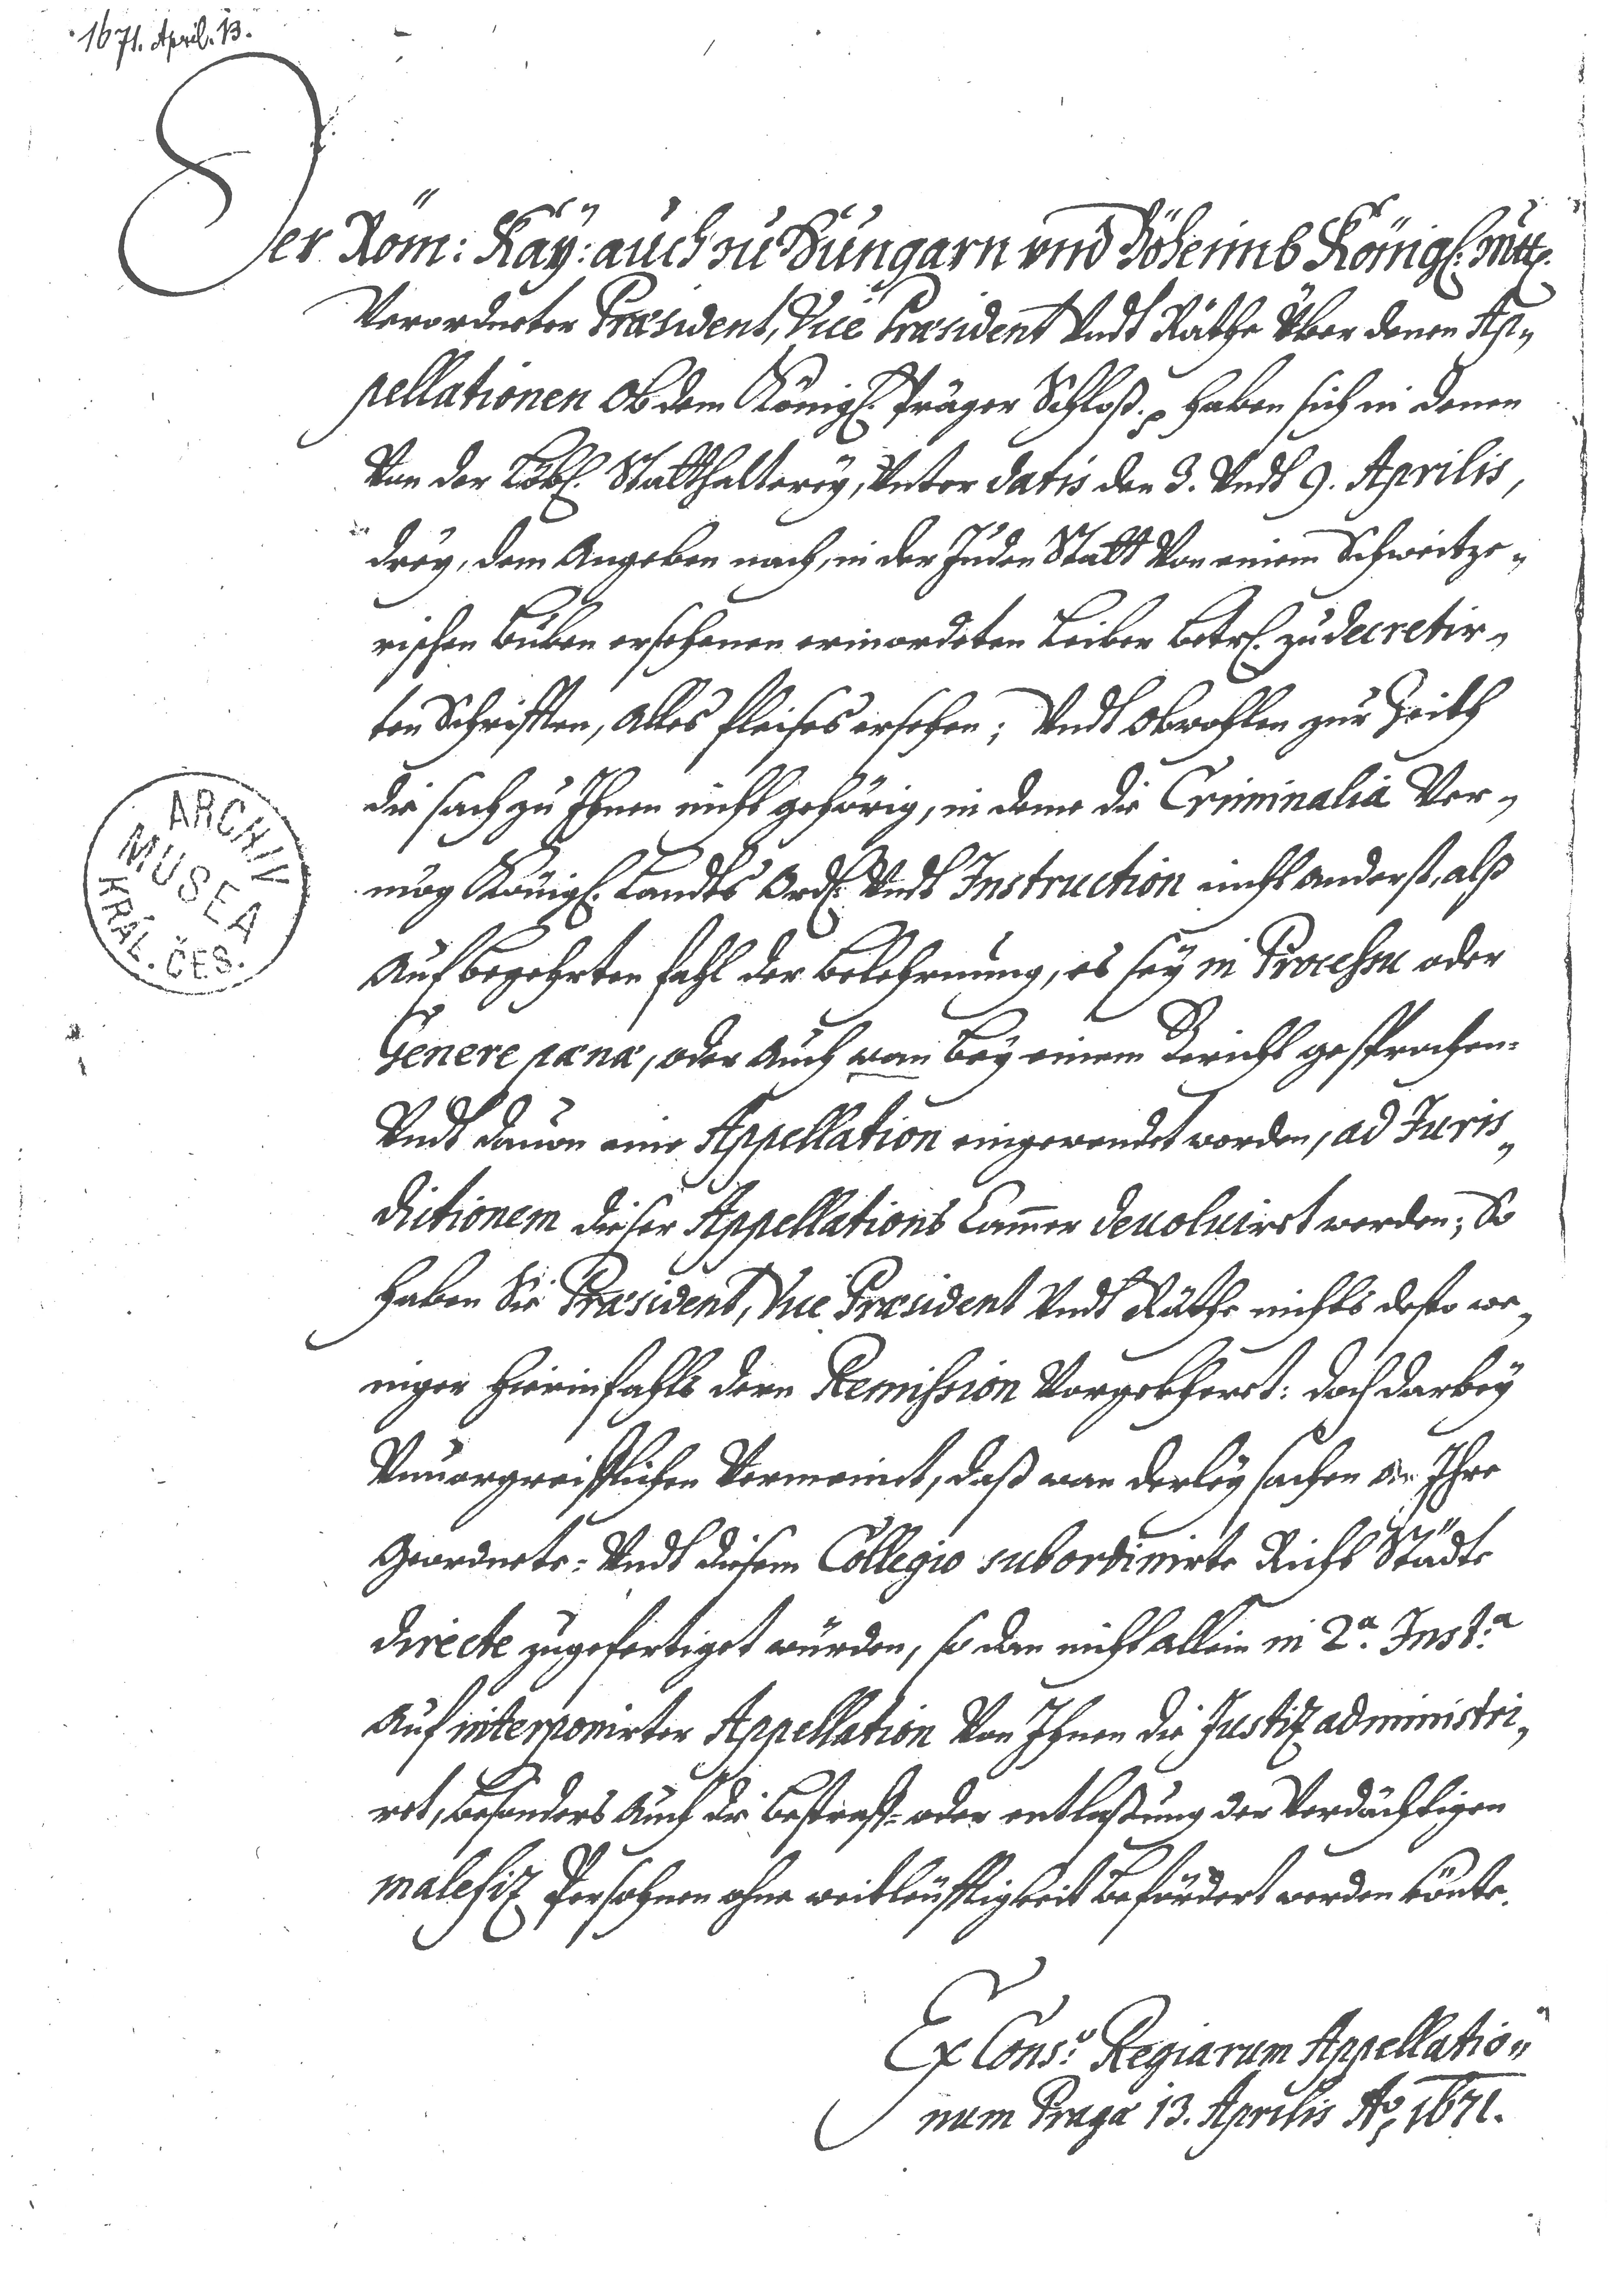 1671. April. 13.
Der Röm: Kaÿ: auch zu Hungarn vnd Böheimb Königl: Mtt:
Verordneter Præsident, Vice Præsident Vndt Räthe Über denen Ap„
pellationen Ob dem Königl. Präger Schloß. haben sich in denen
Von der Löbl. Statthalterey, Vnter datis den 3. Vndt 9. Aprilis,
dreÿ, dem Angeben nach, in der Juden Statt Von einem Schweitze„
rischen Buben ersehenen ermordeten Leiber Betrl. zu decretir„
ten Schrifften, Alles fleises ersehen; Vndt Obwohlen zur Zeith
die sach zu Ihnen nicht gehörig, in deme die Criminalia Ver„
mög Königl. Landts Ord: Vndt Instruction nicht anderst, alß
Auf begehrten fahl der Belehrnung, es seÿ in Processu oder
Genere pænæ, oder Auch wan Beÿ einem Gericht gesprochen-
Vndt dauon eine Appellation eingewendet worden, ad Juris„
dictionem dieser Appellations Cam̄er deuoluiret werden; So
haben Sie Præsident, Vice Præsident Vndt Räthe nichts desto we„
niger hierinfahls dern Remission Vorgekheret: doch darbeÿ
Vnuorgreifflichen Vermeinet, daß wan derleÿ sachen an Ihre
Geordnete- Vndt diesem Collegio subordinirte Richt Städte
directe zugefertiget würden, so dan nicht allein in 2.a Inst:a
Auf interponirter Appellation Von Ihnen die Justiz administri„
ret, besonders Auch die Bestraff- oder entlaßung der Verdächtigen
malefiz Persohnen ohne weitleüfftigkeit Befördert werden könte.
Ex Cons:o Regiarum Appellatio„
num Pragæ 13. Aprilis Ao. 1671.
ARCHIV
MUSEA
KRÁL. ČES.